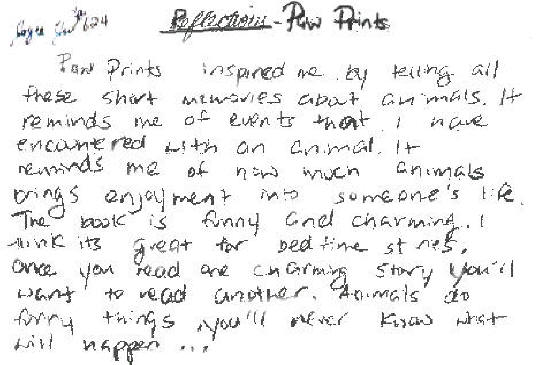 Reflections - Paw Prints
624
Paw Prints inspired me by telling all
these short memories about animals. It
reminds me of events that I have
encountered with an animal. It
reminds me of how much animals
brings enjoyment into someone's life.
The book is funny and charming. I
think its great for bedtime stories,
once you read one charming story you'll
want to read another. Animals do
funny things, you'll never know what
will happen ...